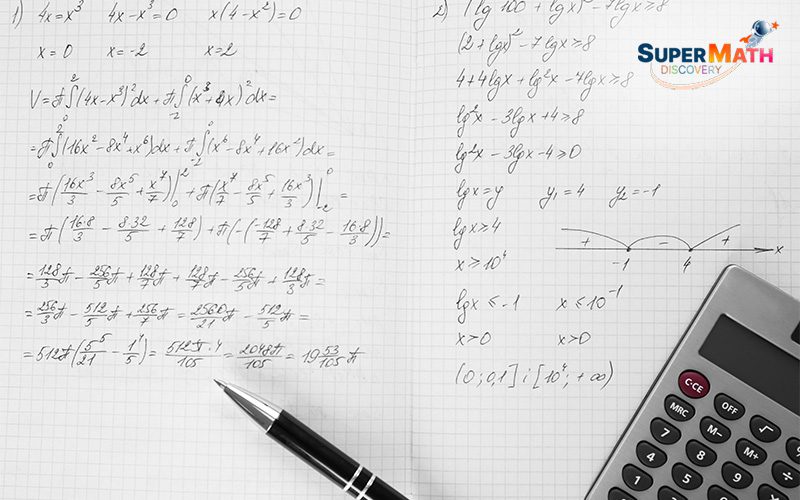 1) 4x=x³ 4x-x³=0 x(4-x²)=0
x=0 x=-2 x=2
V=π∫₀²(4x-x³)²dx+π∫₋₂⁰(x³+4x)²dx=
=π∫₀²(16x²-8x⁴+x⁶)dx+π∫₋₂⁰(x⁶-8x⁴+16x²)dx=
=π(16x³/3-8x⁵/5+x⁷/7)|₀²+π(x⁷/7-8x⁵/5+16x³/3)|₋₂⁰=
=π(16·8/3-8·32/5+128/7)+π(-(-128/7+8·32/5-16·8/3))=
=128/3π-256/5π+128/7π+128/7π-256/5π+128/3π=
=256/3π-512/5π+256/7π=2560/21π-512/5π=
=512π(5/21-1/5)=512π·4/105=2048π/105=19 53/105π
2) (lg100+lgx)²-7lgx≥8
(2+lgx)²-7lgx≥8
4+4lgx+lg²x-7lgx≥8
lg²x-3lgx+4≥8
lg²x-3lgx-4≥0
lgx=y y₁=4 y₂=-1
lgx≥4
+ - +
-1 4 x
x≥10⁴
lgx≤-1 x≤10⁻¹
x>0 x>0
(0;0,1] i [10⁴;+∞)
SUPERMATH
DISCOVERY
C·CE
OFF
√
MRC
M-
M+
7
8
9
4
5
6
1
2
0